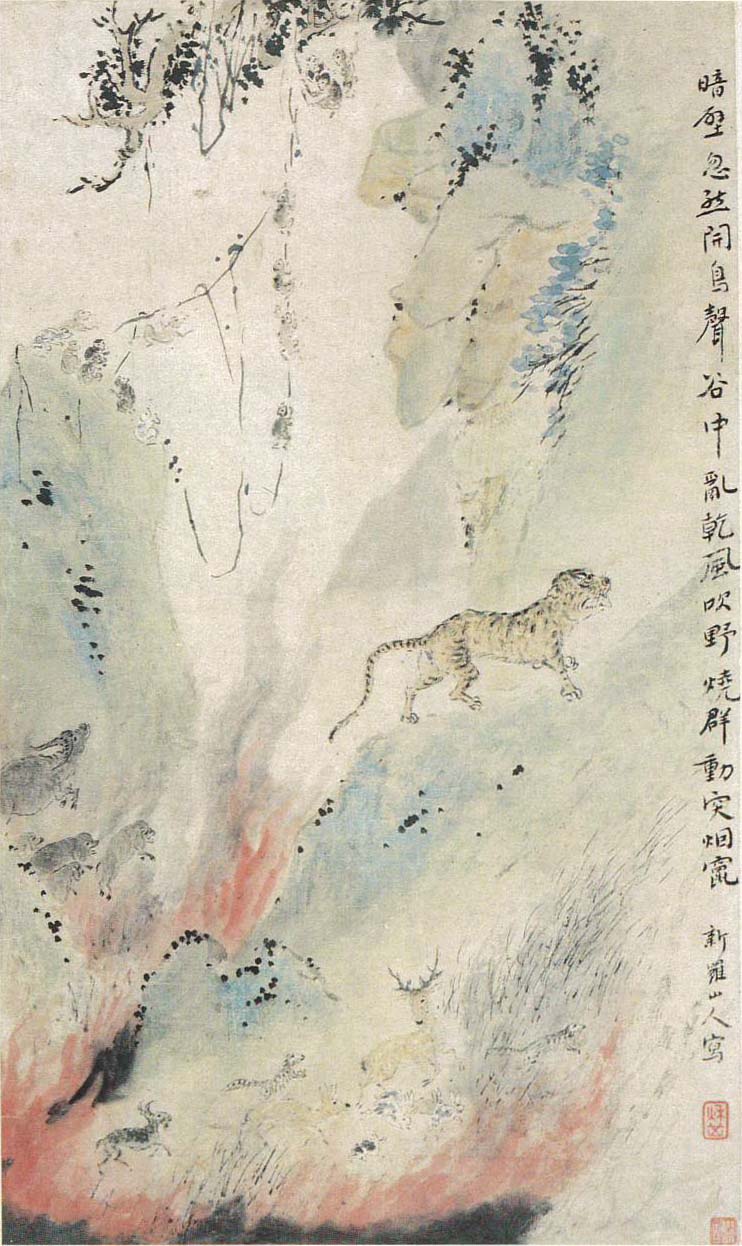 暗壁忽然開鳥聲谷中亂乾風吹野燒群動突烟竄
新羅山人寫